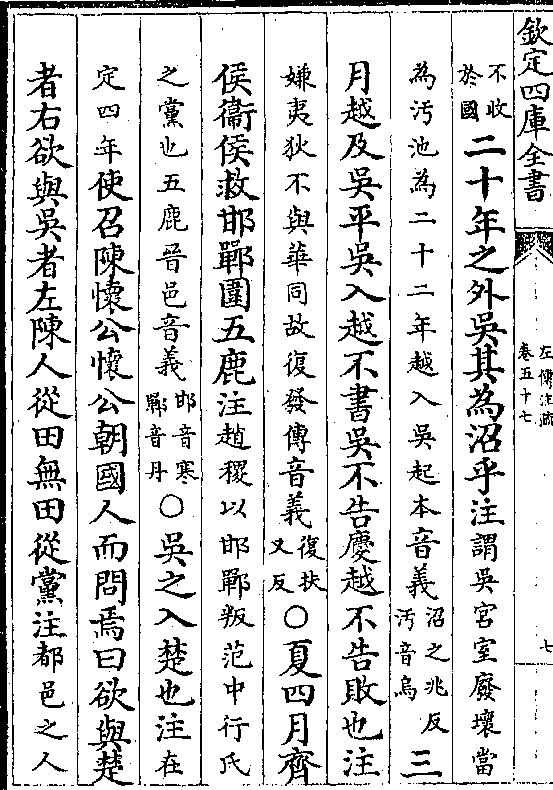 欽定四庫全書
左傳注疏
卷五十七
七
不收於國二十年之外吳其為沼乎注謂吳宮室廢壞當
為汚池為二十二年越入吳起本音義沼之兆反汚音烏三
月越及吳平吳入越不書吳不告慶越不告敗也注
嫌夷狄不與華同故復發傳音義復扶又反○夏四月齊
侯衞侯救邯鄲圍五鹿注趙稷以邯鄲叛范中行氏
之黨也五鹿晉邑音義邯音寒鄲音丹○吳之入楚也注在
定四年使召陳懷公懷公朝國人而問焉曰欲與楚
者右欲與吳者左陳人從田無田從黨注都邑之人